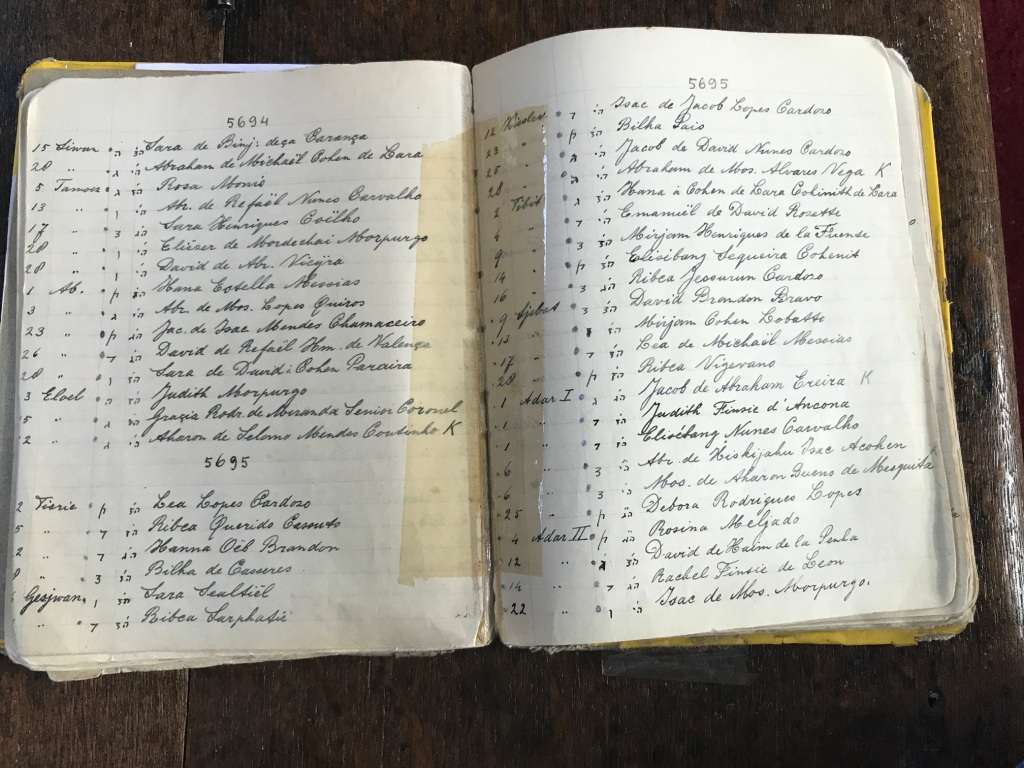 5694
15 Siwan ה הצ Sara de Binj: deça Carança
28 " ג הג Abraham de Michaël Cohen de Lara
5 Tamoes ג הצ Rosa Monis
13 " ו ה' Abr. de Refaël Nunes Carvalho
17 " ג הצ Sara Henriques Coilho
28 " ו הג Eliëser de Mordechai Morpurgo
28 " ו ה' David de Abr. Vieijra
1 Ab. הצ Hana Estella Messias
3 " ג הג Abr. de Mos. Lopes Quiros
23 " הג Jac. de Isac Mendes Chamaceiro
26 " ד הג David de Refaël Hm. de Valença
28 " ו הצ Sara de David: Cohen Pareira
3 Eloel ג הצ Judith Morpurgo
5 " ג הצ Gracia Rodr. de Miranda Senior Coronel
" ג הג Aharon de Selomo Mendes Coutinho K
5695
2 ד הצ Lea Lopes Cardozo
5 " ד הצ Ribca Querido Cassuto
2 " ד הג Hanna Oëb Brandon
" ג הצ Bilha de Casseres
Gesjwan ו הצ Sara Sealtiël
" ד הצ Ribca Sarphatie
5695
12 Kislev ד ה' Isac de Jacob Lopes Cardozo
23 " הצ Bilha Païs
25 " ג ה' Jacob de David Nunes Cardozo
28 " ג ה' Abraham de Mos. Alvares Vega K
2 Tebit ג הצ Hana à Cohen de Lara Cohinith de Lara
4 " ה' Emanuël de David Rosette
9 " ג הצ Mirjam Henriques de la Fuente
14 " הצ Elisibang Sequeira Cohenit
16 " הצ Ribca Jessurun Cardozo
9 Sjebat ג הג David Brandon Bravo
13 " הצ Mirjam Cohen Lobatto
17 " ד הצ Lea de Michaël Messias
28 " הצ Ribca Vigevano
1 Adar I ג ה' Jacob de Abraham Ereira K
1 " ד הצ Judith Finsie d'Ancona
1 " ד הצ Elisébang Nunes Carvalho
6 " ג ה' Abr. de Hiskijahu Isac Acohen
6 " ג ה' Mos. de Aharon Bueno de Mesquita K
25 " Debora Rodrigues Lopes
4 Adar II Rosina Meljado
12 " ג הצ David de Haïm de la Penha
14 " ד הצ Rachel Finsie de Leon
22 " ו ה' Isac de Mos. Morpurgo.